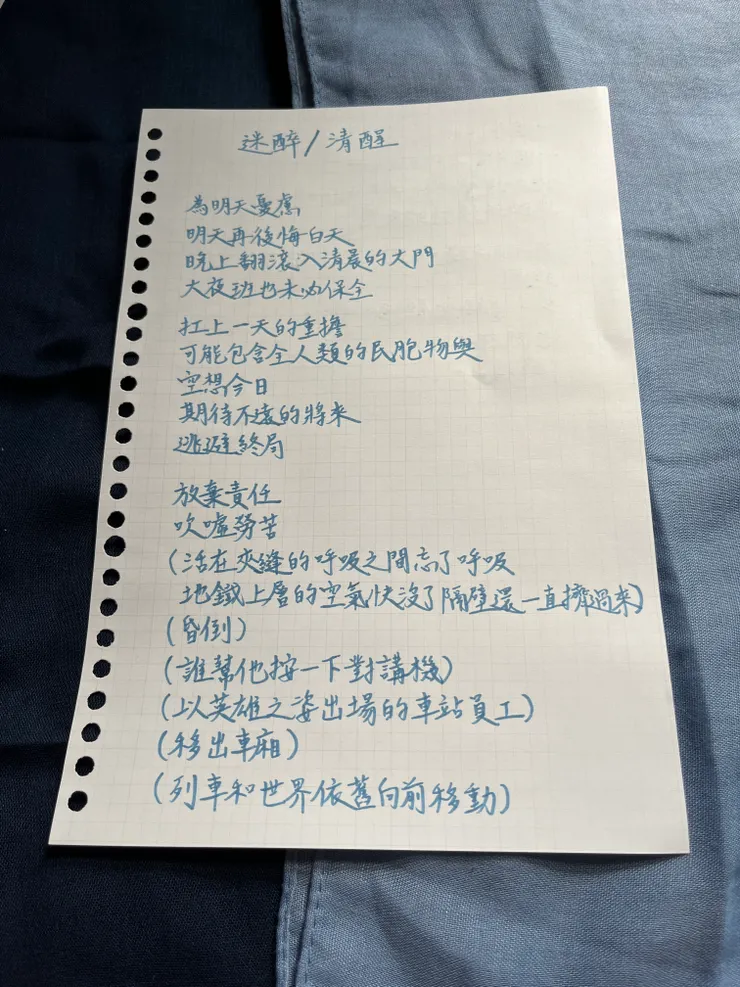 迷醉/清醒
為明天憂慮
明天再後悔白天
晚上翻滾入清晨的大門
大夜班也未必保全
扛上一天的重擔
可能包含全人類的民胞物與
空想今日
期待不遠的將來
逃避終局
放棄責任
吹噓勞苦
(活在夾縫的呼吸之間忘了呼吸
地鐵上層的空氣快沒了隔壁還一直擠過來)
(昏倒)
(誰幫他按一下對講機)
(以英雄之姿出場的車站員工)
(移出車廂)
(列車和世界依舊向前移動)